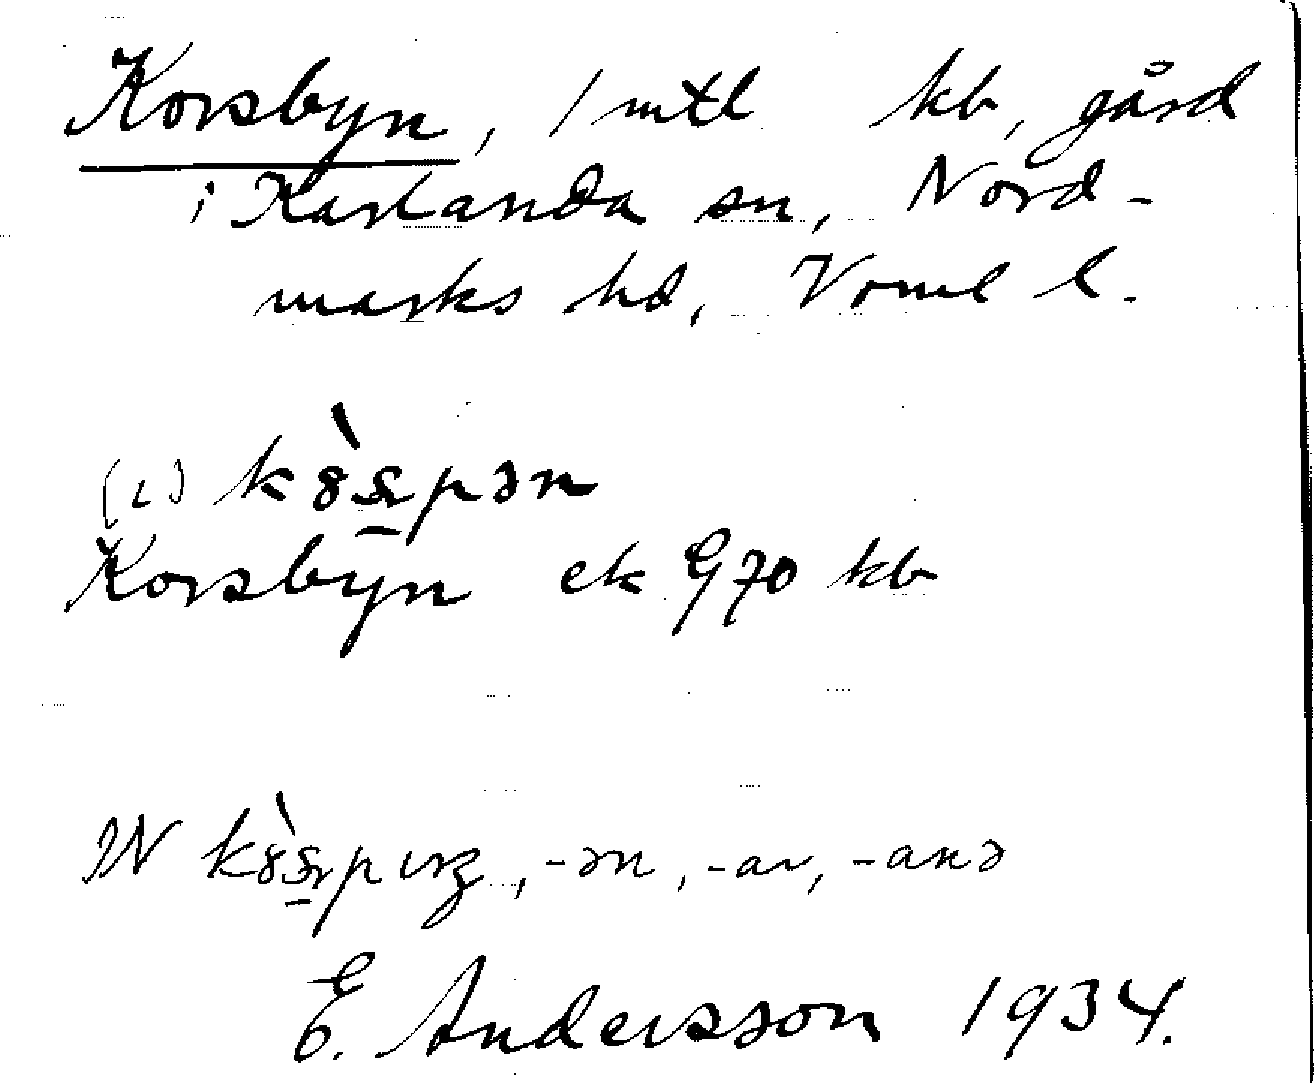 Korsbyn, 1 mtl kb, gård
i Karlanda sn, Nord-
marks hd, Värml l.
(ı) kȣ̀s̱pən
Korsbyn ek 970 kb
IN kȣ̀s̱pıŋ, -ən, -ar, -anə
E. Andersson 1934.